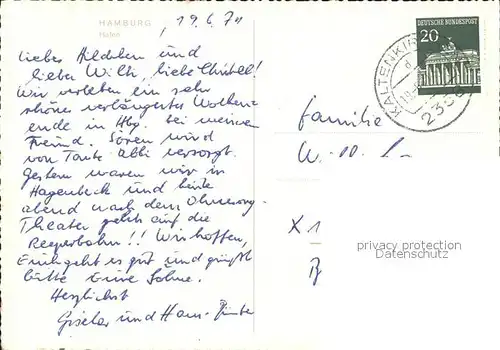 HAMBURG
Hafen
19.6.70
Liebes Hildchen und
lieber Willi, liebe Christel!
Wir verleben ein sehr
schönes verlängertes Wochen
ende in Hbg. bei meinem
Freund. Sören wird
von Tante versorgt.
Gestern waren wir in
Hagenbeck und heute
abend nach dem Ohnsorg-
Theater geht's auf die
Reeperbahn!! Wir hoffen,
Euch geht es gut und grüßt
bitte Eure Söhne.
Herzlichst
Gisela und Hans-Günter
DEUTSCHE BUNDESPOST
20
KALTENKIR
2358
Familie
W.
X 1
B
privacy protection
Datenschutz